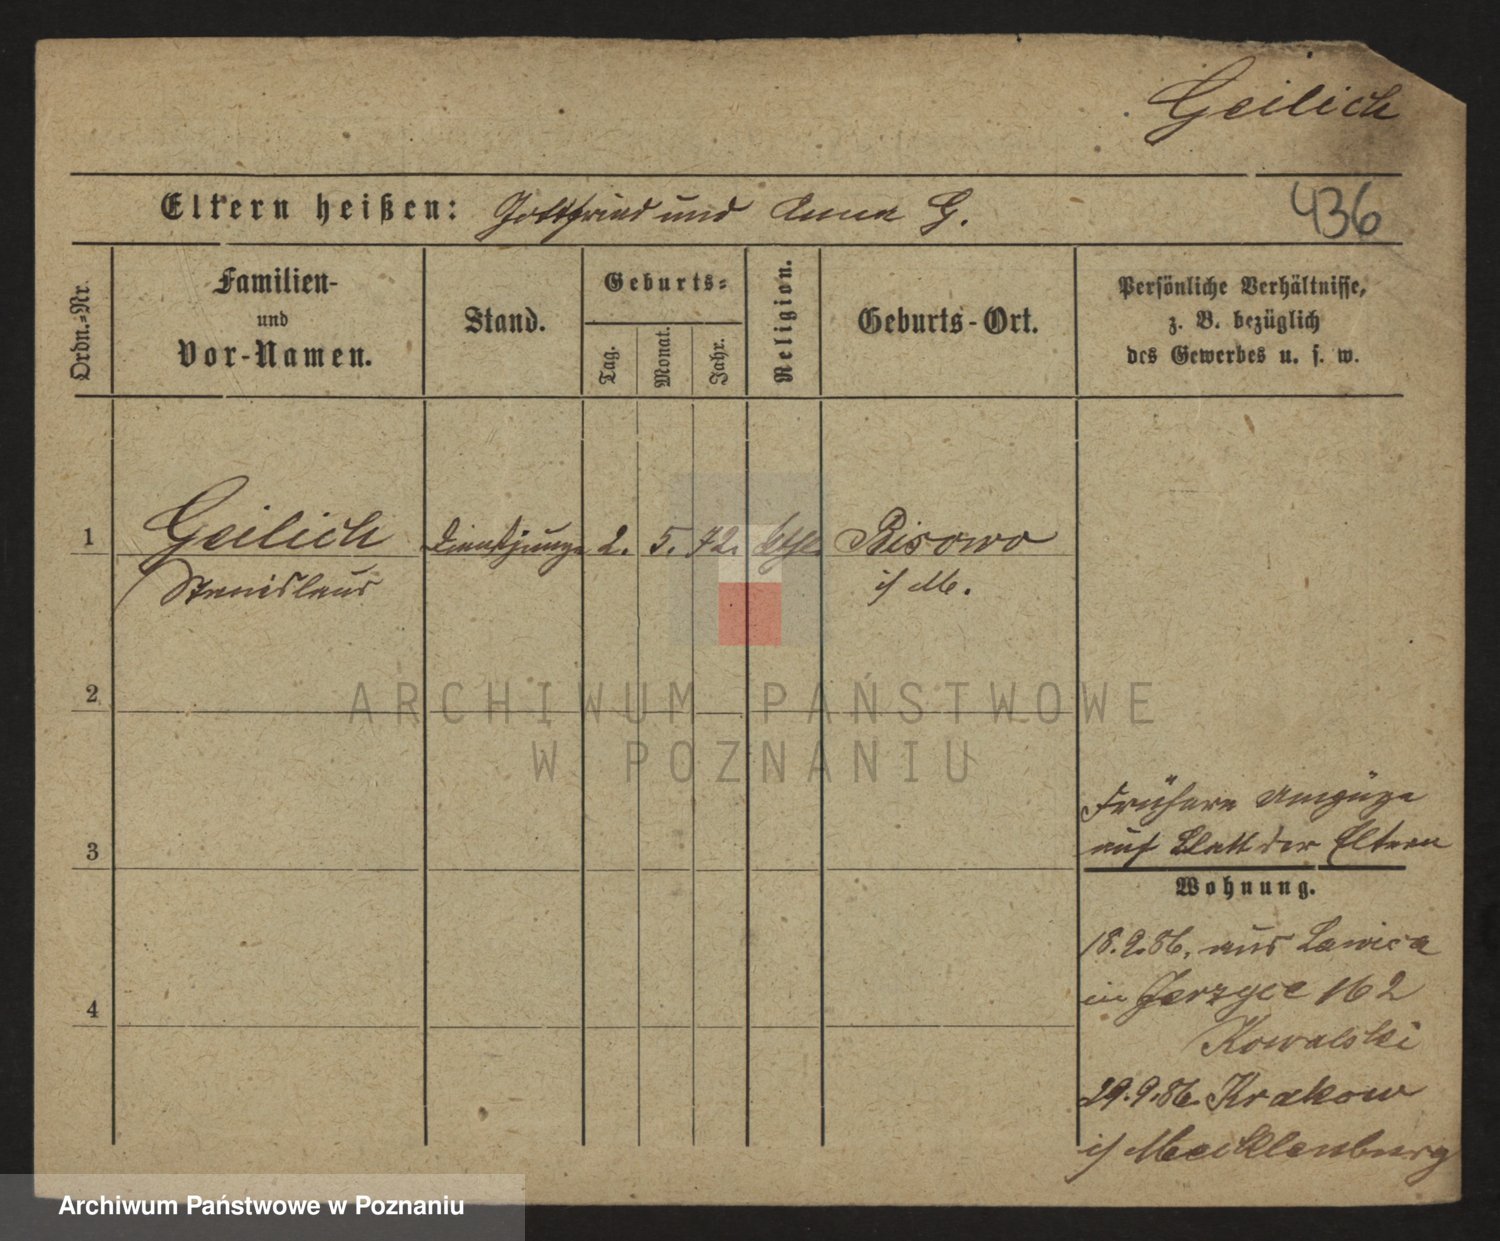 Geilich
Eltern heißen: Gottfried und Anna G.
436
Ordn.-Nr.
Familien-
und
Vor-Namen.
Stand.
Geburts-
Tag.
Monat.
Jahr.
Religion.
Geburts-Ort.
Persönliche Verhältnisse,
z. B. bezüglich
des Gewerbes u. s. w.
1 Geilich Dienstjunge 2. 5. 72. kath Bisowo
Stanislaus i/ M.
2
ARCHIWUM PAŃSTWOWE
W POZNANIU
Frühere Umzüge
3 auf Blatt der Eltern
Wohnung.
18.9.86. aus Lawica
in Jerzyce 162
4
Kowalski
29.9.86 Krakow
i/ Mecklenburg
Archiwum Państwowe w Poznaniu